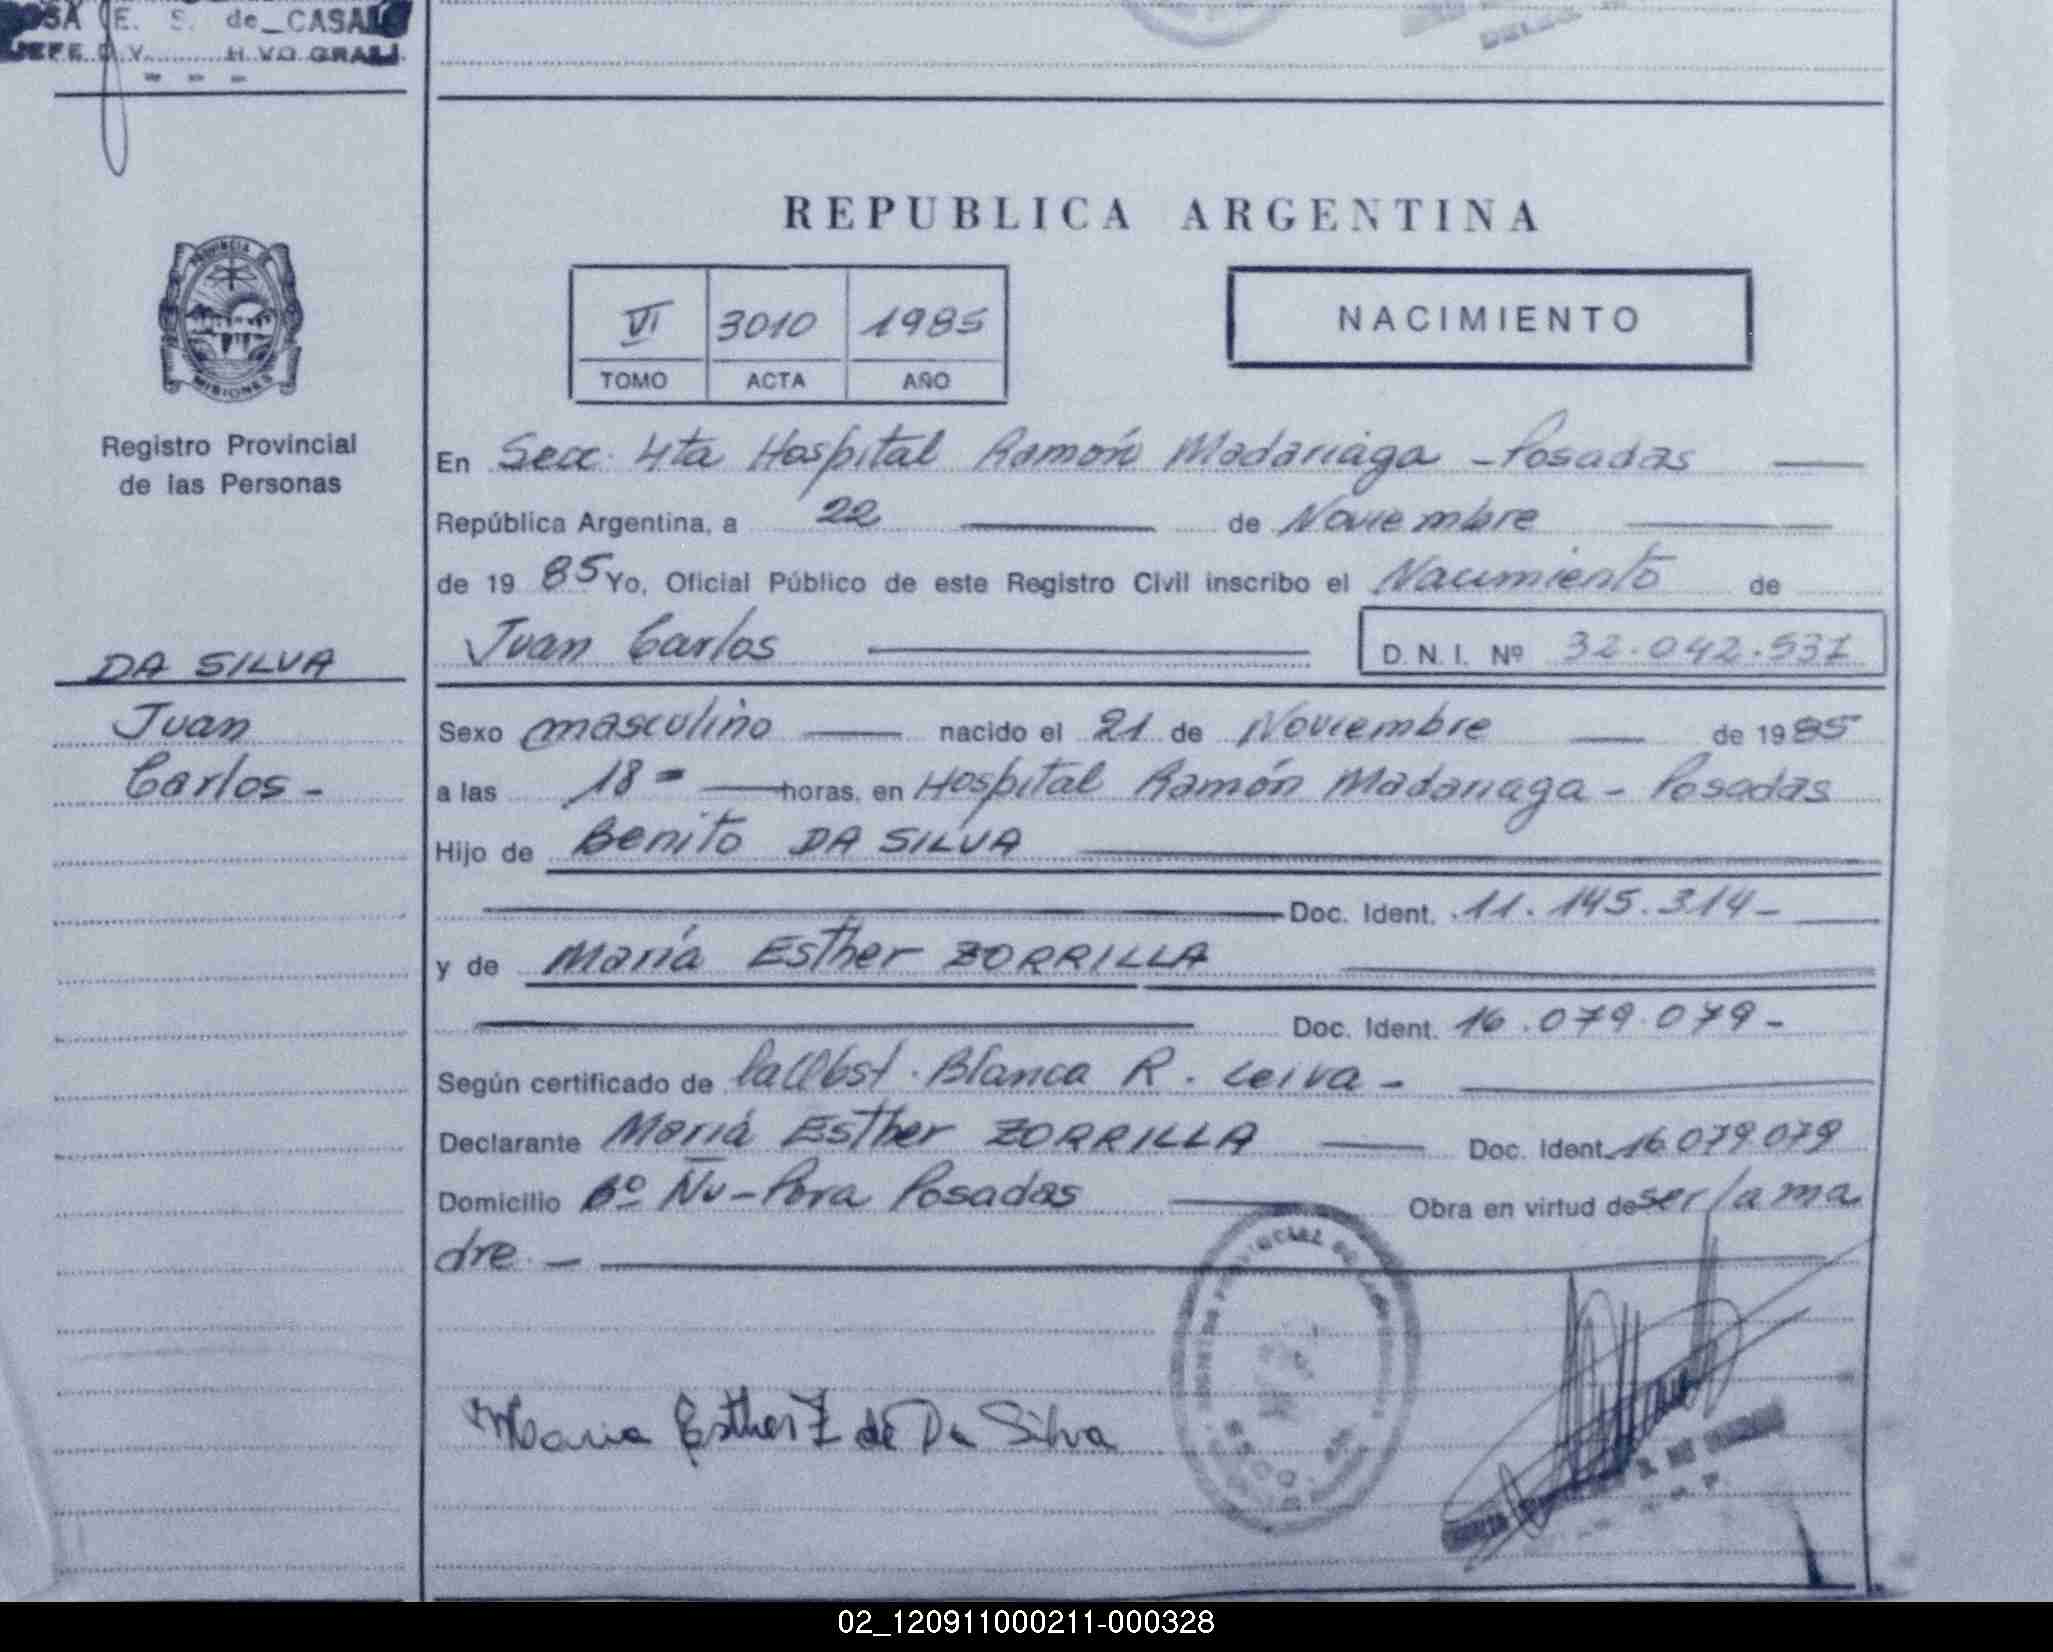 E. S. de CASAL
- - -
REPUBLICA ARGENTINA
PROVINCIA DE
MISIONES
Registro Provincial
de las Personas
VI 3010 1985
TOMO ACTA AÑO
NACIMIENTO
En Secc. 4ta Hospital Ramón Madariaga - Posadas
República Argentina, a 22 de Noviembre
de 1985 Yo, Oficial Público de este Registro Civil inscribo el Nacimiento de
Juan Carlos D.N.I. Nº 32.042.537
DA SILVA
Juan
Carlos -
Sexo masculino nacido el 21 de Noviembre de 1985
a las 18 = horas, en Hospital Ramón Madariaga - Posadas
Hijo de Benito DA SILVA
Doc. Ident. 11.145.314 -
y de María Esther ZORRILLA
Doc. Ident. 16.079.079 -
Según certificado de la Obst. Blanca R. Leiva -
Declarante María Esther ZORRILLA Doc. Ident. 16.079.079
Domicilio Bº Ñu-Pora Posadas Obra en virtud de ser la ma
dre. -
Maria Esther Z de Da Silva
02_120911000211-000328